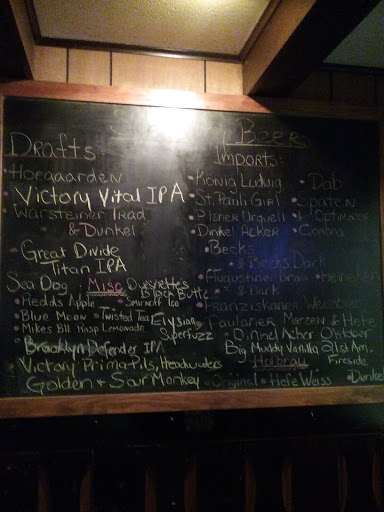 Beer
Drafts
Hoegaarden
Victory Vital IPA
Warsteiner Trad.
& Dunkel
Great Divide
Titan IPA
Sea Dog
Misc
Black Butte
Hedds Apple
Smirnoff Ice
Blue Moon
Twisted Tea
Elysian
Mikes Bll Rasp Lemonade
Superfuzz
Brooklyn Defender IPA
Victory Prima Pils, Headwaters
Golden + Sour Monkey
Imports:
Konig Ludwig
Dab
St. Pauli Girl
Spaten
Pilsner Urquell
Optimator
Dinkel Acker
Corona
Becks
& Becks Dark
Augustiner brau
& Dark
Franziskaner Weissbier
Paulaner
& Hefe
Big Muddy Vanilla
21st Am.
Hofbrau
Fireside
Original
Hefe Weiss
Dunkel